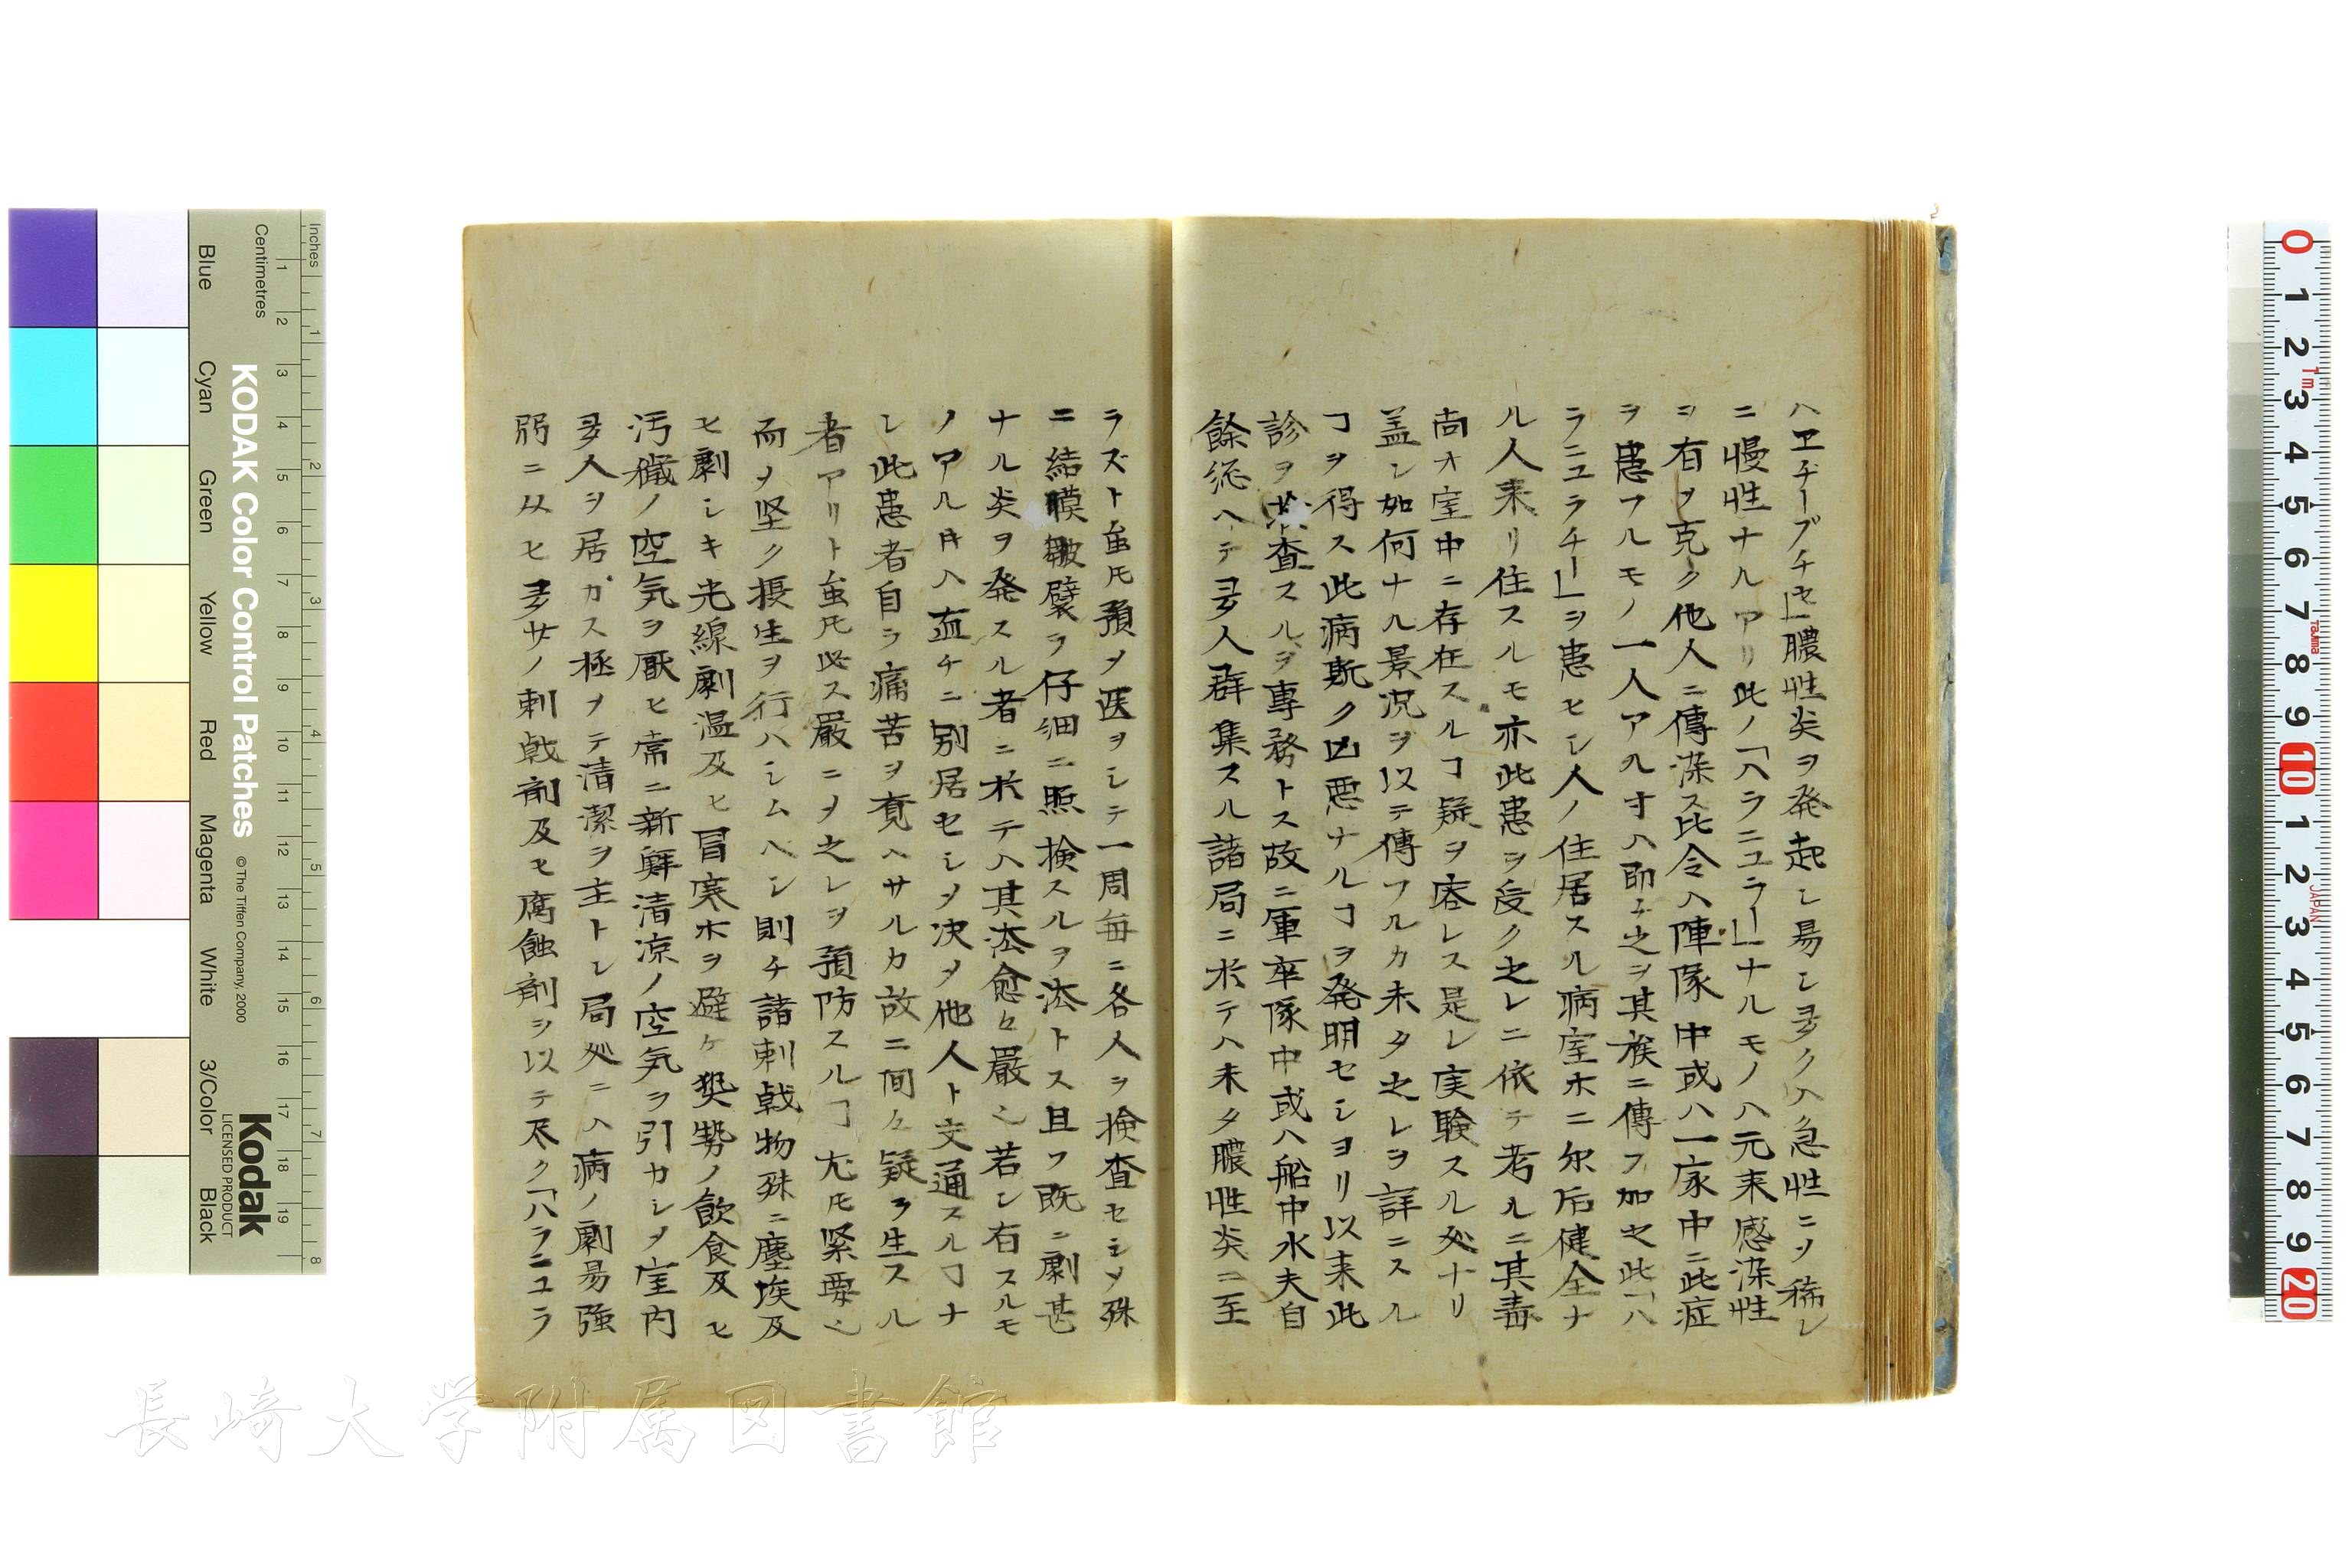 ハエチーブチセ」膿性炎ヲ発起シ易シ多クハ急性ニヿ稀レ
ニ慢性ナルアリ此ノ「ハラニユラー」ナルモノハ元来感染性
ヲ有ヿ克ク他人ニ傳染ス比令ハ陣隊中或ハ一家中ニ此症
ヲ患フルモノ一人アル寸ハ即チ之ヲ其族ニ傳フ加之此「ハ
ラニユラチー」ヲ患セシ人ノ住居スル病室木ニ尓后健全ナ
ル人来リ住スルモ亦此患ヲ受ク之レニ依テ考ルニ其毒
尚オ室中ニ存在スルヿ疑ヲ容レス是レ実験スル処ナリ
盖シ如何ナル景況ヲ以テ傳フルカ未タ之レヲ詳ニスル
ヿヲ得ス此病斯ク凶悪ナルヿヲ発明セシヨリ以来此
診ヲ検査スルヲ専務トス故ニ軍卒隊中或ハ船中水夫自
餘総ヘテ多人群集スル諸局ニ於テハ未タ膿性炎ニ至
ラズト虽𪜈預メ医ヲシテ一周毎ニ各人ヲ検査セシメ殊
ニ結膜皺襞ヲ仔細ニ照検スルヲ法トス且ツ既ニ劇甚
ナル炎ヲ発スル者ニ於テハ其法愈々嚴也若シ右スルモ
ノアル时ハ直チニ別居セシメ决メ他人ト交通スルヿナ
シ此患者自ラ痛苦ヲ覚ヘサルカ故ニ间々疑ヲ生スル
者アリト虽𪜈必ス嚴ニヿ之レヲ預防スルヿ尤𪜈緊要也
而ヿ堅ク摂生ヲ行ハシムヘシ則チ諸刺戟物殊ニ塵埃及
ヒ劇シキ光線劇温及ヒ冒寒木ヲ避ケ奨勢ノ飲食及ヒ
汚穢ノ空気ヲ厭ヒ常ニ新鮮清凉ノ空気ヲ引カシメ室内
多人ヲ居カス極メテ清潔ヲ主トシ局処ニハ病ノ劇易強
弱ニ从ヒ多サノ刺戟剤及ヒ腐蝕剤ヲ以テ尽ク「ハラニユラ
KODAK Color Control Patches
© The Tiffen Company, 2000
Kodak
LICENSED PRODUCT
Inches
1 2 3 4 5 6 7 8
Centimetres
1 2 3 4 5 6 7 8 9 10 11 12 13 14 15 16 17 18 19
Blue
Cyan
Green
Yellow
Red
Magenta
White
3/Color
Black
0 1 2 3 4 5 6 7 8 9 10 1 2 3 4 5 6 7 8 9 20
1m
TAJIMA
JAPAN
長崎大学附属図書館